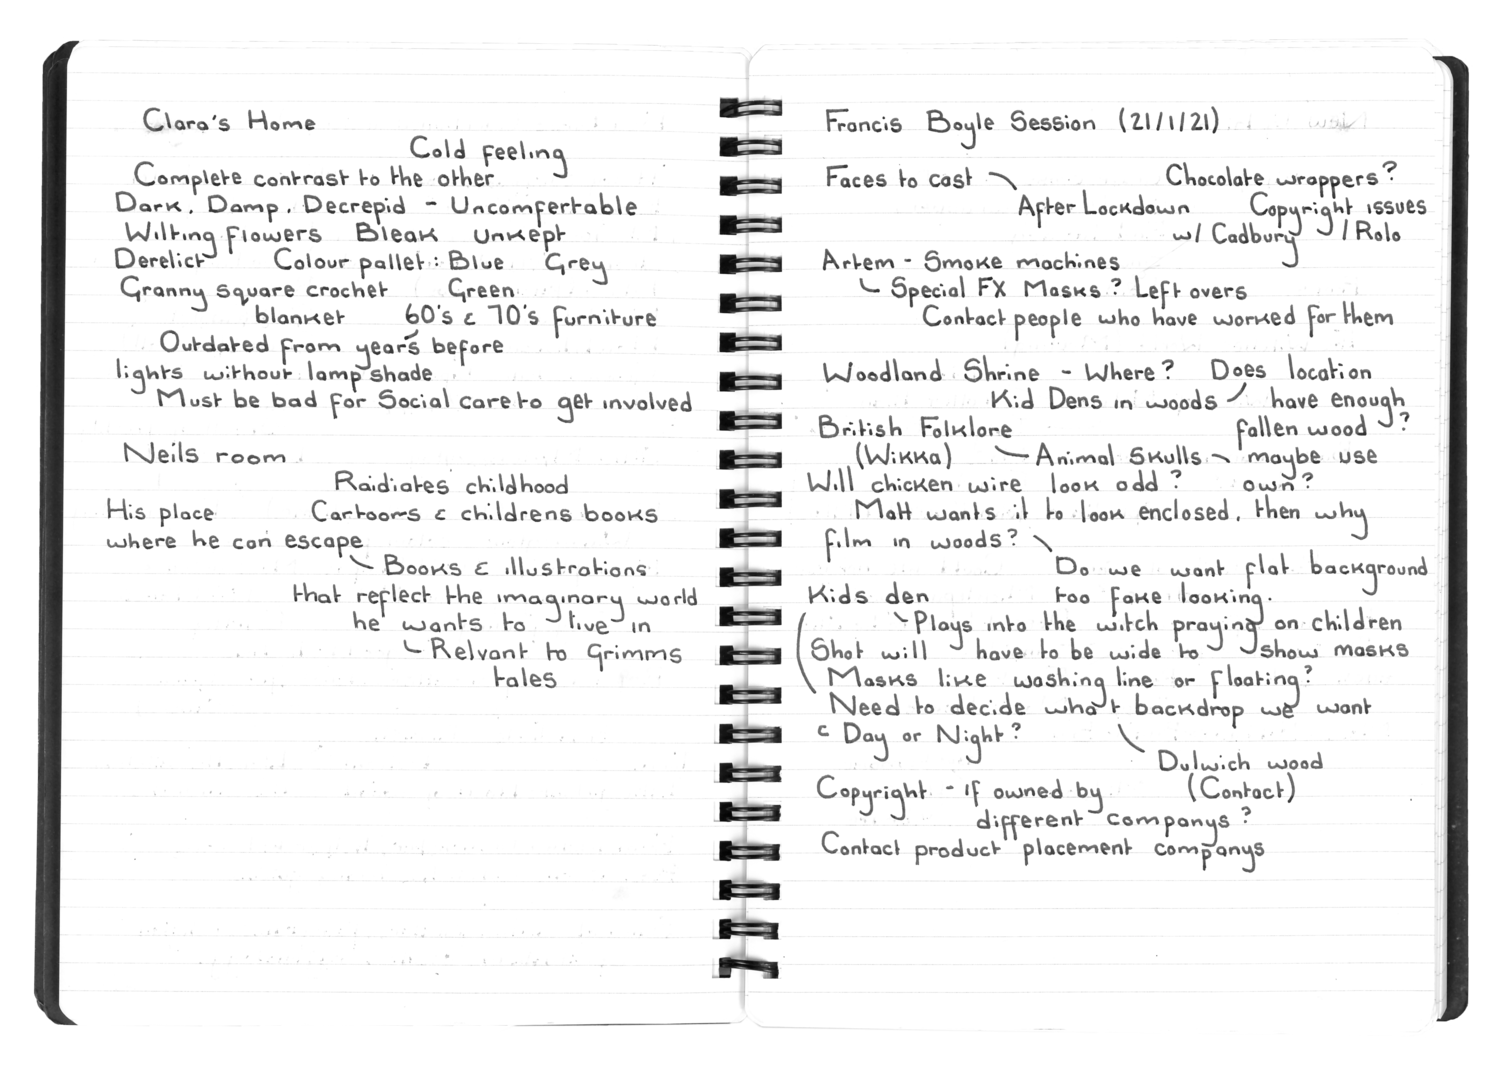 Clara's Home
Cold feeling
Complete contrast to the other
Dark, Damp, Decrepid - Uncomfertable
Wilting flowers Bleak unkept
Derelict Colour pallet: Blue Grey
Granny square crochet Green
blanket 60's & 70's furniture
Outdated from years before
lights without lamp shade
Must be bad for Social care to get involved
Neils room
Raidiates childhood
His place Cartoons & childrens books
where he can escape
Books & illustrations
that reflect the imaginary world
he wants to live in
Relvant to Grimms
tales
Francis Boyle Session (21/1/21)
Faces to cast Chocolate wrappers?
After Lockdown Copyright issues
w/ Cadbury / Rolo
Artem - Smoke machines
Special FX Masks? Left overs
Contact people who have worked for them
Woodland Shrine - Where? Does location
Kid Dens in woods have enough
British Folklore fallen wood?
(Wikka) Animal Skulls maybe use
Will chicken wire look odd? own?
Matt wants it to look enclosed, then why
film in woods?
Do we want flat background
Kids den too fake looking.
Plays into the witch praying on children
Shot will have to be wide to show masks
Masks like washing line or floating?
Need to decide what backdrop we want
& Day or Night?
Dulwich wood
Copyright - if owned by (Contact)
different companys?
Contact product placement companys